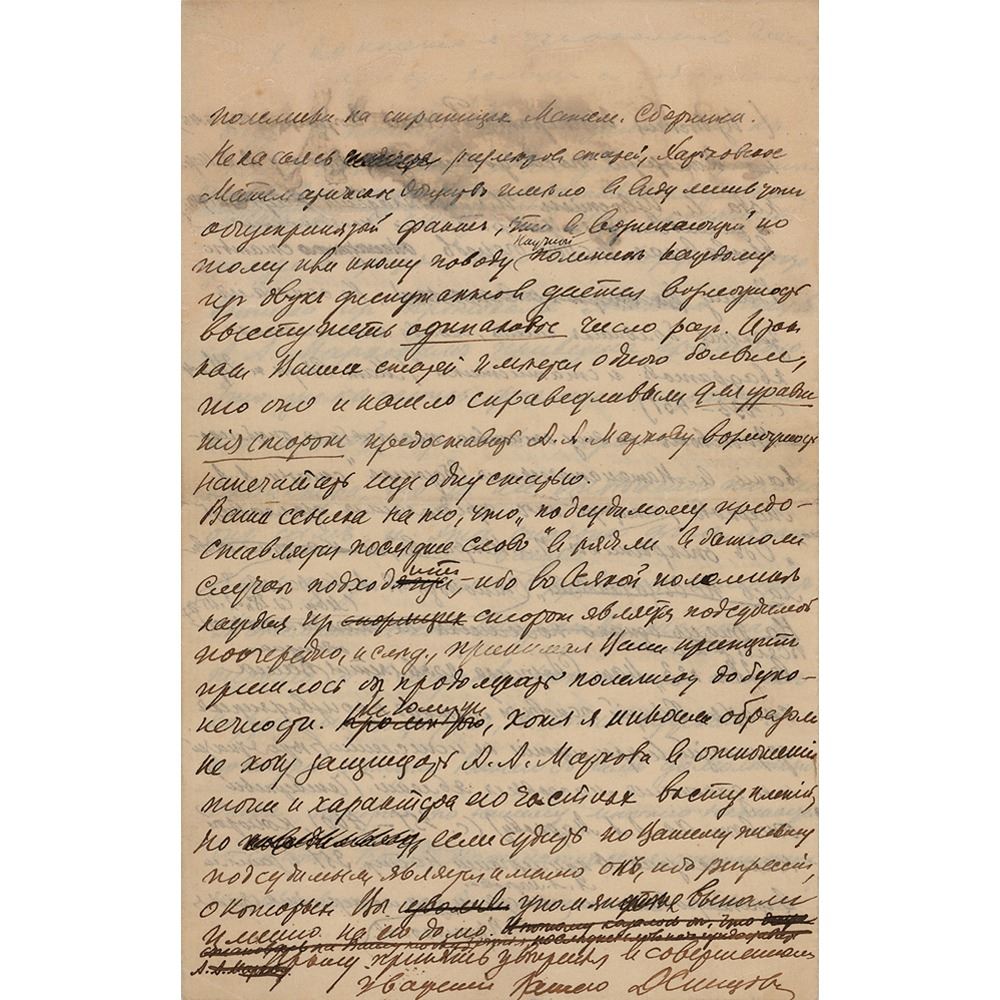 полемики на страницах Матем. Сборника.
Не касаясь характера статей, Харьковское
Математическое общество имело в виду лишь тот
общепринятый факт, что в возникающей по
тому или иному поводу научной полемике каждому
из двух диспутантов дается возможность
выступить одинаковое число раз. И так
как Ваших статей имеется одною больше,
то оно и нашло справедливым для уравне
ния сторон предоставить А. А. Маркову возможность
напечатать еще одну статью.
Ваша ссылка на то, что „подсудимому предо-
ставляется последнее слово" едва ли в данном
случае подходит, ибо во всякой полемике
каждая из спорящих сторон является подсудимой
поочередно, и след., принимая Ваш принцип
пришлось бы продолжать полемику до беско-
нечности. хотя я никоим образом
не хочу защищать А. А. Маркова в отношении
тона и характера его частных выступлений,
но если судить по Вашему письму
подсудимым является именно он, ибо репрессии,
о которых Вы упоминаете выпали
именно на его долю. И потому казалось бы, что
последнее слово
А. А. Маркову.
Прошу принять уверения в совершенном
уважении Вашего ДСинцов